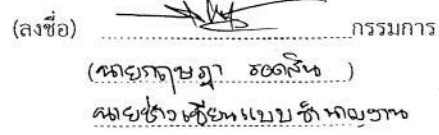 (ลงชื่อ) ........................ กรรมการ
(นายกฤษฎา รอดสิน)
นายช่างเขียนแบบชำนาญงาน